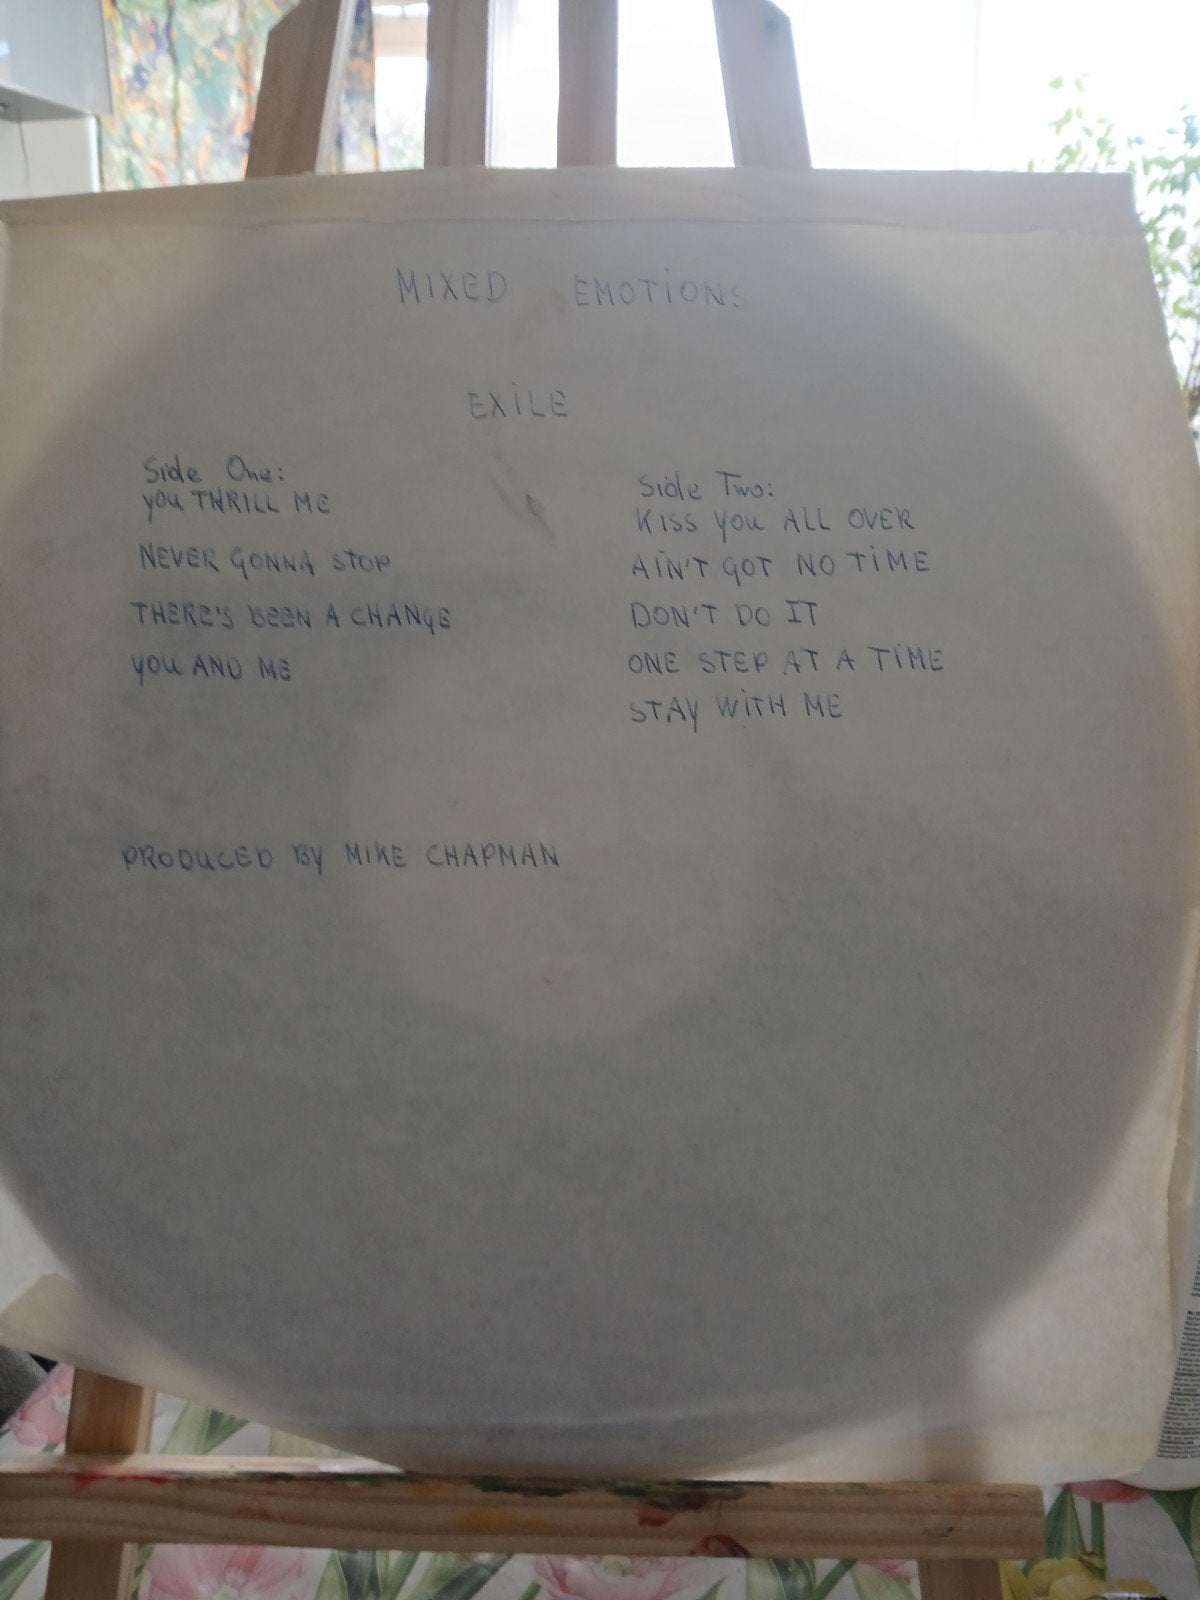 MIXED EMOTIONS
EXILE
Side One:
you THRILL ME
NEVER GONNA STOP
THERE'S BEEN A CHANGE
you AND ME
Side Two:
KISS you ALL OVER
AIN'T GOT NO TIME
DON'T DO IT
ONE STEP AT A TIME
STAY WITH ME
PRODUCED BY MIKE CHAPMAN